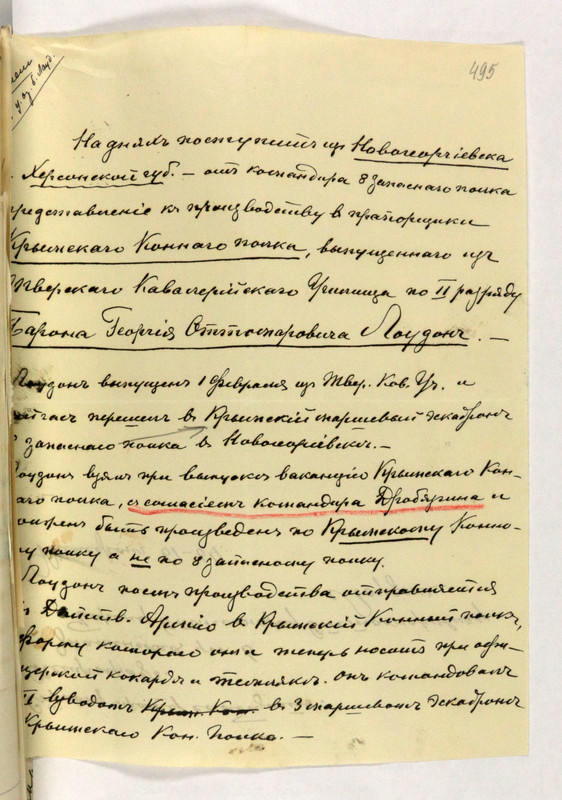 495
На дняхъ поступитъ изъ Новогеоргіевска
Херсонской губ. — отъ командира 8 запаснаго полка
представленіе къ производству въ прапорщики
Крымскаго Коннаго полка, выпущеннаго изъ
Тверскаго Кавалерійскаго Училища по II разряду
Барона Георгія Оттомаровича Лоудонъ. —
Лоудонъ выпущенъ 1 февраля изъ Твер. Кав. Уч. и
перешелъ въ Крымскій маршевый эскадронъ
8 запаснаго полка въ Новогеоргіевскъ. —
Лоудонъ взялъ при выпускѣ вакансію Крымскаго Кон-
наго полка, съ согласіемъ командира Дробязгина и
долженъ быть произведенъ по Крымскому Конно-
му полку а не по 8 запасному полку.
Лоудонъ послѣ производства отправляется
въ Действ. Армію въ Крымскій Конный полкъ,
форму котораго онъ и теперь носитъ при офи-
церской кокардѣ и темлякѣ. онъ командовалъ
I взводомъ Крым. Кон. въ 3 маршевомъ эскадронѣ
Крымскаго Кон. Полка. —